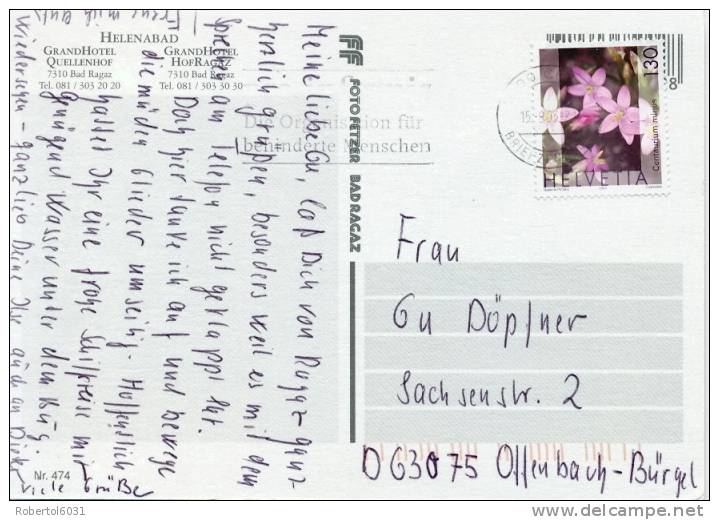 HELENABAD
GRANDHOTEL
QUELLENHOF
7310 Bad Ragaz
Tel. 081 / 303 20 20
GRANDHOTEL
HOFRAGAZ
7310 Bad Ragaz
Tel. 081 / 303 30 30
Die Organisation für
behinderte Menschen
Meine liebe Gu, laß Dich von Ragaz ganz
herzlich grüßen, besonders weil es mit dem
Sprechen am Telefon nicht geklappt hat.
Doch hier tanke ich auf und bewege
die müden Glieder umseitig. Hoffentlich
hattet Ihr eine frohe Schiffreise mit
genügend Wasser unter dem Bug.
Freue mich aufs
Wiedersehen - ganz lieb Deine Ilse auch an Dieter
viele Grüße
Nr. 474
FF FOTO FETZER BAD RAGAZ
130
Centaurium minus
HELVETIA
8
Frau
Gu Döpfner
Sachsenstr. 2
D 63075 Offenbach-Bürgel
Robertol6031
delcampe.net